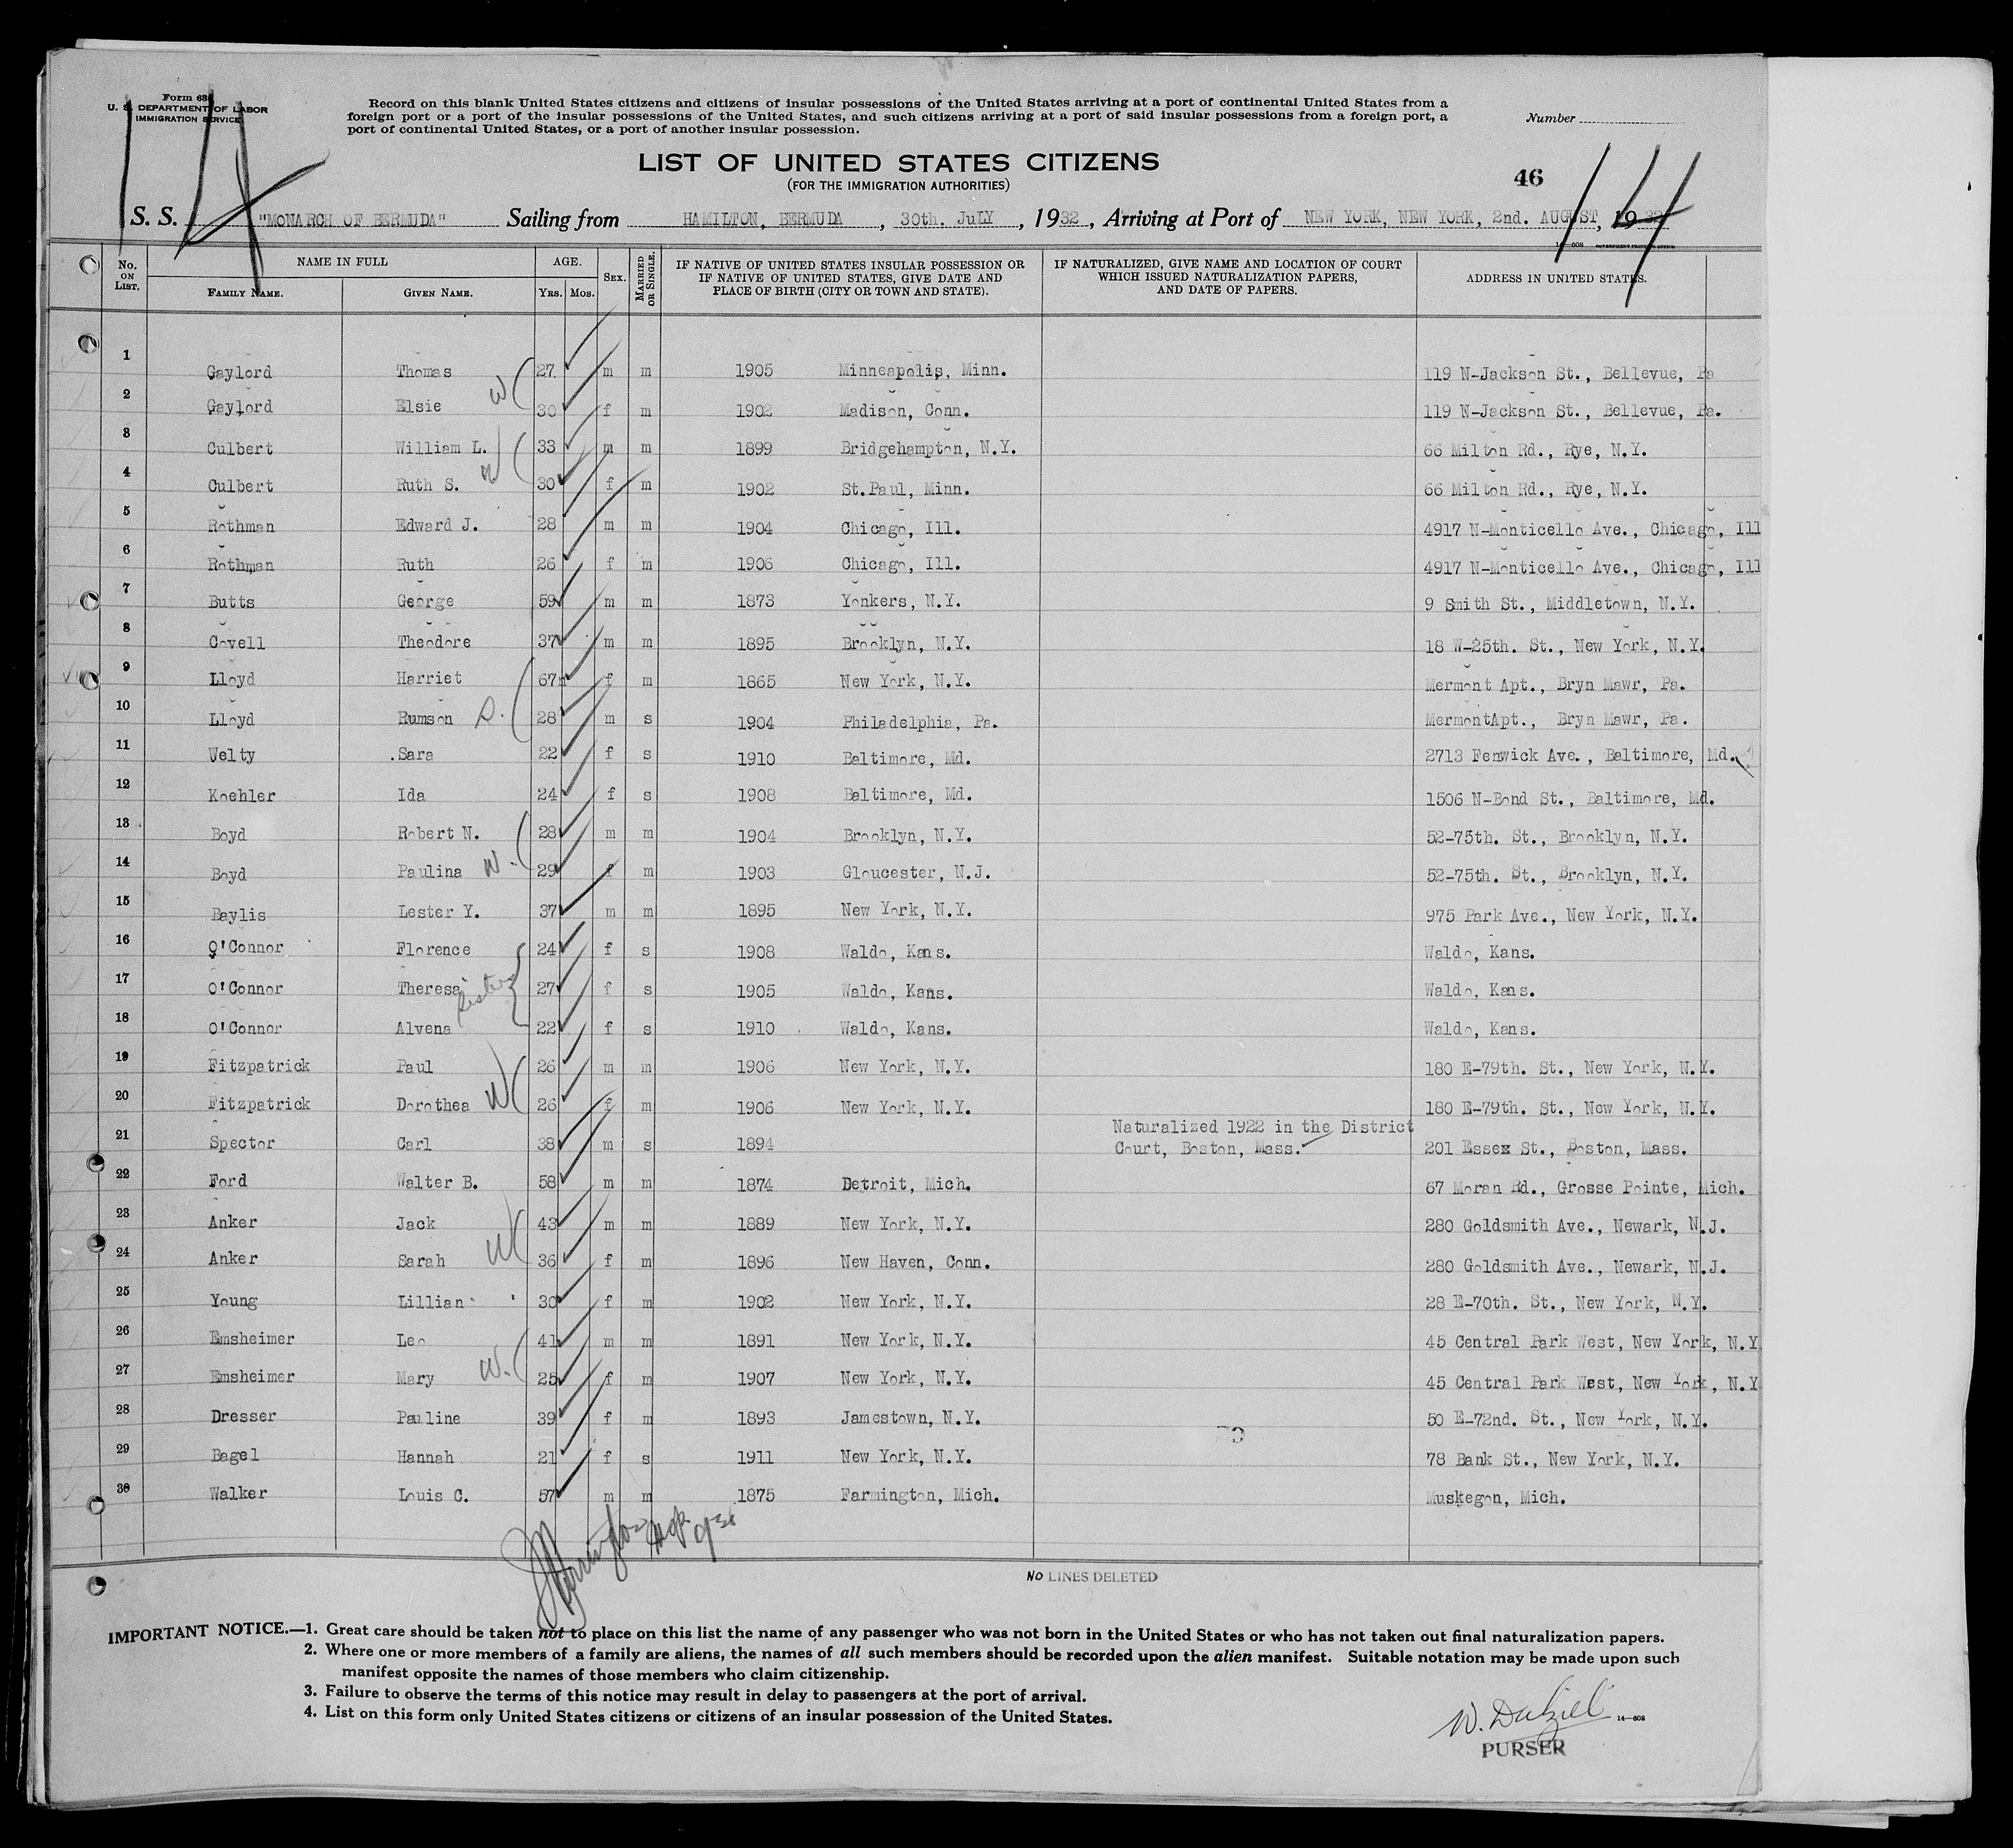 Form 630
U. S. DEPARTMENT OF LABOR
IMMIGRATION SERVICE
Record on this blank United States citizens and citizens of insular possessions of the United States arriving at a port of continental United States from a
foreign port or a port of the insular possessions of the United States, and such citizens arriving at a port of said insular possessions from a foreign port, a
port of continental United States, or a port of another insular possession.
Number
LIST OF UNITED STATES CITIZENS
(FOR THE IMMIGRATION AUTHORITIES)
46
14
14
S. S. "MONARCH OF BERMUDA" Sailing from HAMILTON, BERMUDA, 30th. JuLY, 1932, Arriving at Port of NEW YORK, NEW YORK, 2nd. AUGUST, 1932
No. ON LIST. NAME IN FULL AGE. SEX. MARRIED OR SINGLE. IF NATIVE OF UNITED STATES INSULAR POSSESSION OR IF NATIVE OF UNITED STATES, GIVE DATE AND PLACE OF BIRTH (CITY OR TOWN AND STATE). IF NATURALIZED, GIVE NAME AND LOCATION OF COURT WHICH ISSUED NATURALIZATION PAPERS, AND DATE OF PAPERS. ADDRESS IN UNITED STATES.
FAMILY NAME. GIVEN NAME. YRS. MOS.
1 Gaylord Thomas 27 m m 1905 Minneapolis, Minn. 119 N-Jackson St., Bellevue, Pa
2 Gaylord Elsie W 30 f m 1902 Madison, Conn. 119 N-Jackson St., Bellevue, Pa.
3 Culbert William L. 33 m m 1899 Bridgehampton, N.Y. 66 Milton Rd., Rye, N.Y.
4 Culbert Ruth S. W 30 f m 1902 St.Paul, Minn. 66 Milton Rd., Rye, N.Y.
5 Rothman Edward J. 28 m m 1904 Chicago, Ill. 4917 N-Monticello Ave., Chicago, Ill
6 Rothman Ruth 26 f m 1906 Chicago, Ill. 4917 N-Monticello Ave., Chicago, Ill
7 Butts George 59 m m 1873 Yonkers, N.Y. 9 Smith St., Middletown, N.Y.
8 Covell Theodore 37 m m 1895 Brooklyn, N.Y. 18 W-25th. St., New York, N.Y.
9 Lloyd Harriet 67 f m 1865 New York, N.Y. Mermont Apt., Bryn Mawr, Pa.
10 Lloyd Rumson S. 28 m s 1904 Philadelphia, Pa. MermontApt., Bryn Mawr, Pa.
11 Welty Sara 22 f s 1910 Baltimore, Md. 2713 Fenwick Ave., Baltimore, Md.
12 Koehler Ida 24 f s 1908 Baltimore, Md. 1506 N-Bond St., Baltimore, Md.
13 Boyd Robert N. 28 m m 1904 Brooklyn, N.Y. 52-75th. St., Brooklyn, N.Y.
14 Boyd Paulina W. 29 f m 1903 Gloucester, N.J. 52-75th. St., Brooklyn, N.Y.
15 Baylis Lester Y. 37 m m 1895 New York, N.Y. 975 Park Ave., New York, N.Y.
16 O'Connor Florence 24 f s 1908 Waldo, Kans. Waldo, Kans.
17 O'Connor Theresa Sisters 27 f s 1905 Waldo, Kans. Waldo, Kans.
18 O'Connor Alvena 22 f s 1910 Waldo, Kans. Waldo, Kans.
19 Fitzpatrick Paul 26 m m 1906 New York, N.Y. 180 E-79th. St., New York, N.Y.
20 Fitzpatrick Dorothea W 26 f m 1906 New York, N.Y. 180 E-79th. St., New York, N.Y.
21 Spector Carl 38 m s 1894 Naturalized 1922 in the District Court, Boston, Mass. 201 Essex St., Boston, Mass.
22 Ford Walter B. 58 m m 1874 Detroit, Mich. 67 Moran Rd., Grosse Pointe, Mich.
23 Anker Jack 43 m m 1889 New York, N.Y. 280 Goldsmith Ave., Newark, N.J.
24 Anker Sarah W 36 f m 1896 New Haven, Conn. 280 Goldsmith Ave., Newark, N.J.
25 Young Lillian 30 f m 1902 New York, N.Y. 28 E-70th. St., New York, N.Y.
26 Emsheimer Leo 41 m m 1891 New York, N.Y. 45 Central Park West, New York, N.Y
27 Emsheimer Mary W. 25 f m 1907 New York, N.Y. 45 Central Park West, New York, N.Y
28 Dresser Pauline 39 f m 1893 Jamestown, N.Y. 50 E-72nd. St., New York, N.Y.
29 Bagel Hannah 21 f s 1911 New York, N.Y. 78 Bank St., New York, N.Y.
30 Walker Louis C. 57 m m 1875 Farmington, Mich. Muskegon, Mich.
NO LINES DELETED
IMPORTANT NOTICE.—1. Great care should be taken not to place on this list the name of any passenger who was not born in the United States or who has not taken out final naturalization papers.
2. Where one or more members of a family are aliens, the names of all such members should be recorded upon the alien manifest. Suitable notation may be made upon such
manifest opposite the names of those members who claim citizenship.
3. Failure to observe the terms of this notice may result in delay to passengers at the port of arrival.
4. List on this form only United States citizens or citizens of an insular possession of the United States.
W. Dalziell
14—608
PURSER